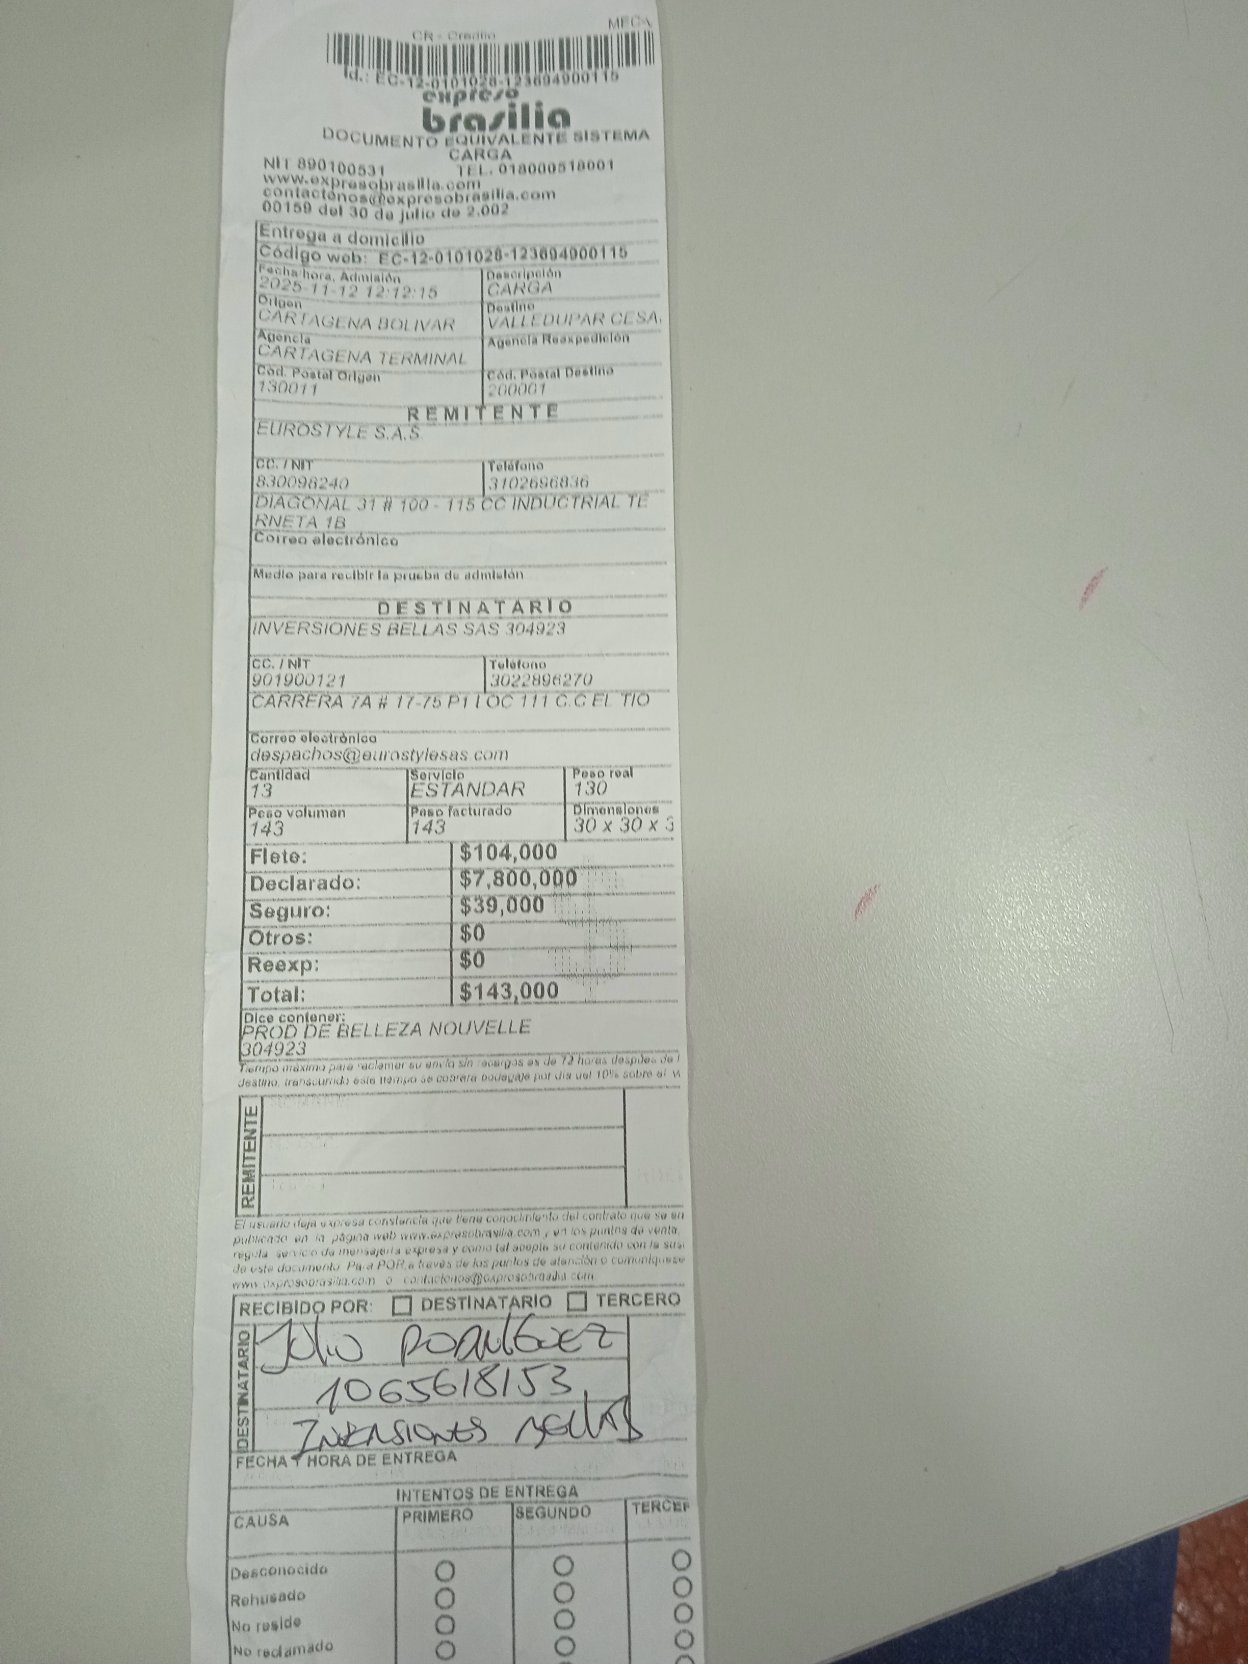 MECA
CR - Credito
Id.: EC-12-0101028-123694900115
expreso
brasilia
DOCUMENTO EQUIVALENTE SISTEMA
CARGA
NIT 890100531 TEL. 018000518001
www.expresobrasilia.com
contactenos@expresobrasilia.com
00159 del 30 de julio de 2.002
Entrega a domicilio
Código web: EC-12-0101028-123694900115
Fecha hora. Admisión Descripción
2025-11-12 12:12:15 CARGA
Origen Destino
CARTAGENA BOLIVAR VALLEDUPAR CESA.
Agencia Agencia Reexpedición
CARTAGENA TERMINAL
Cód. Postal Origen Cód. Postal Destino
130011 200001
REMITENTE
EUROSTYLE S.A.S
CC. / NIT Teléfono
830098240 3102696836
DIAGONAL 31 # 100 - 115 CC INDUCTRIAL TE
RNETA 1B
Correo electrónico
Medio para recibir la prueba de admisión
DESTINATARIO
INVERSIONES BELLAS SAS 304923
CC. / NIT Teléfono
901900121 3022896270
CARRERA 7A # 17-75 P1 LOC 111 C.C EL TIO
Correo electrónico
despachos@eurostylesas.com
Cantidad Servicio Peso real
13 ESTANDAR 130
Peso volumen Peso facturado Dimensiones
143 143 30 x 30 x 3
Flete: $104,000
Declarado: $7,800,000
Seguro: $39,000
Otros: $0
Reexp: $0
Total: $143,000
Dice contener:
PROD DE BELLEZA NOUVELLE
304923
Tiempo máximo para reclamar su envío sin recargos es de 72 horas después de l
destino, transcurrido este tiempo se cobrará bodegaje por día del 10% sobre el v
REMITENTE
El usuario deja expresa constancia que tiene conocimiento del contrato que se en
publicado en la página web www.expresobrasilia.com y en los puntos de venta,
regula servicio de mensajería expresa y como tal acepta su contenido con la susc
de este documento. Para PQR a través de los puntos de atención o comuníquese
www.expresobrasilia.com o contactenos@expresobrasilia.com
RECIBIDO POR: DESTINATARIO TERCERO
DESTINATARIO
Julio Rodriguez
1065618153
Inversiones Bellas
FECHA Y HORA DE ENTREGA
INTENTOS DE ENTREGA
CAUSA PRIMERO SEGUNDO TERCER
Desconocido
Rehusado
No reside
No reclamado